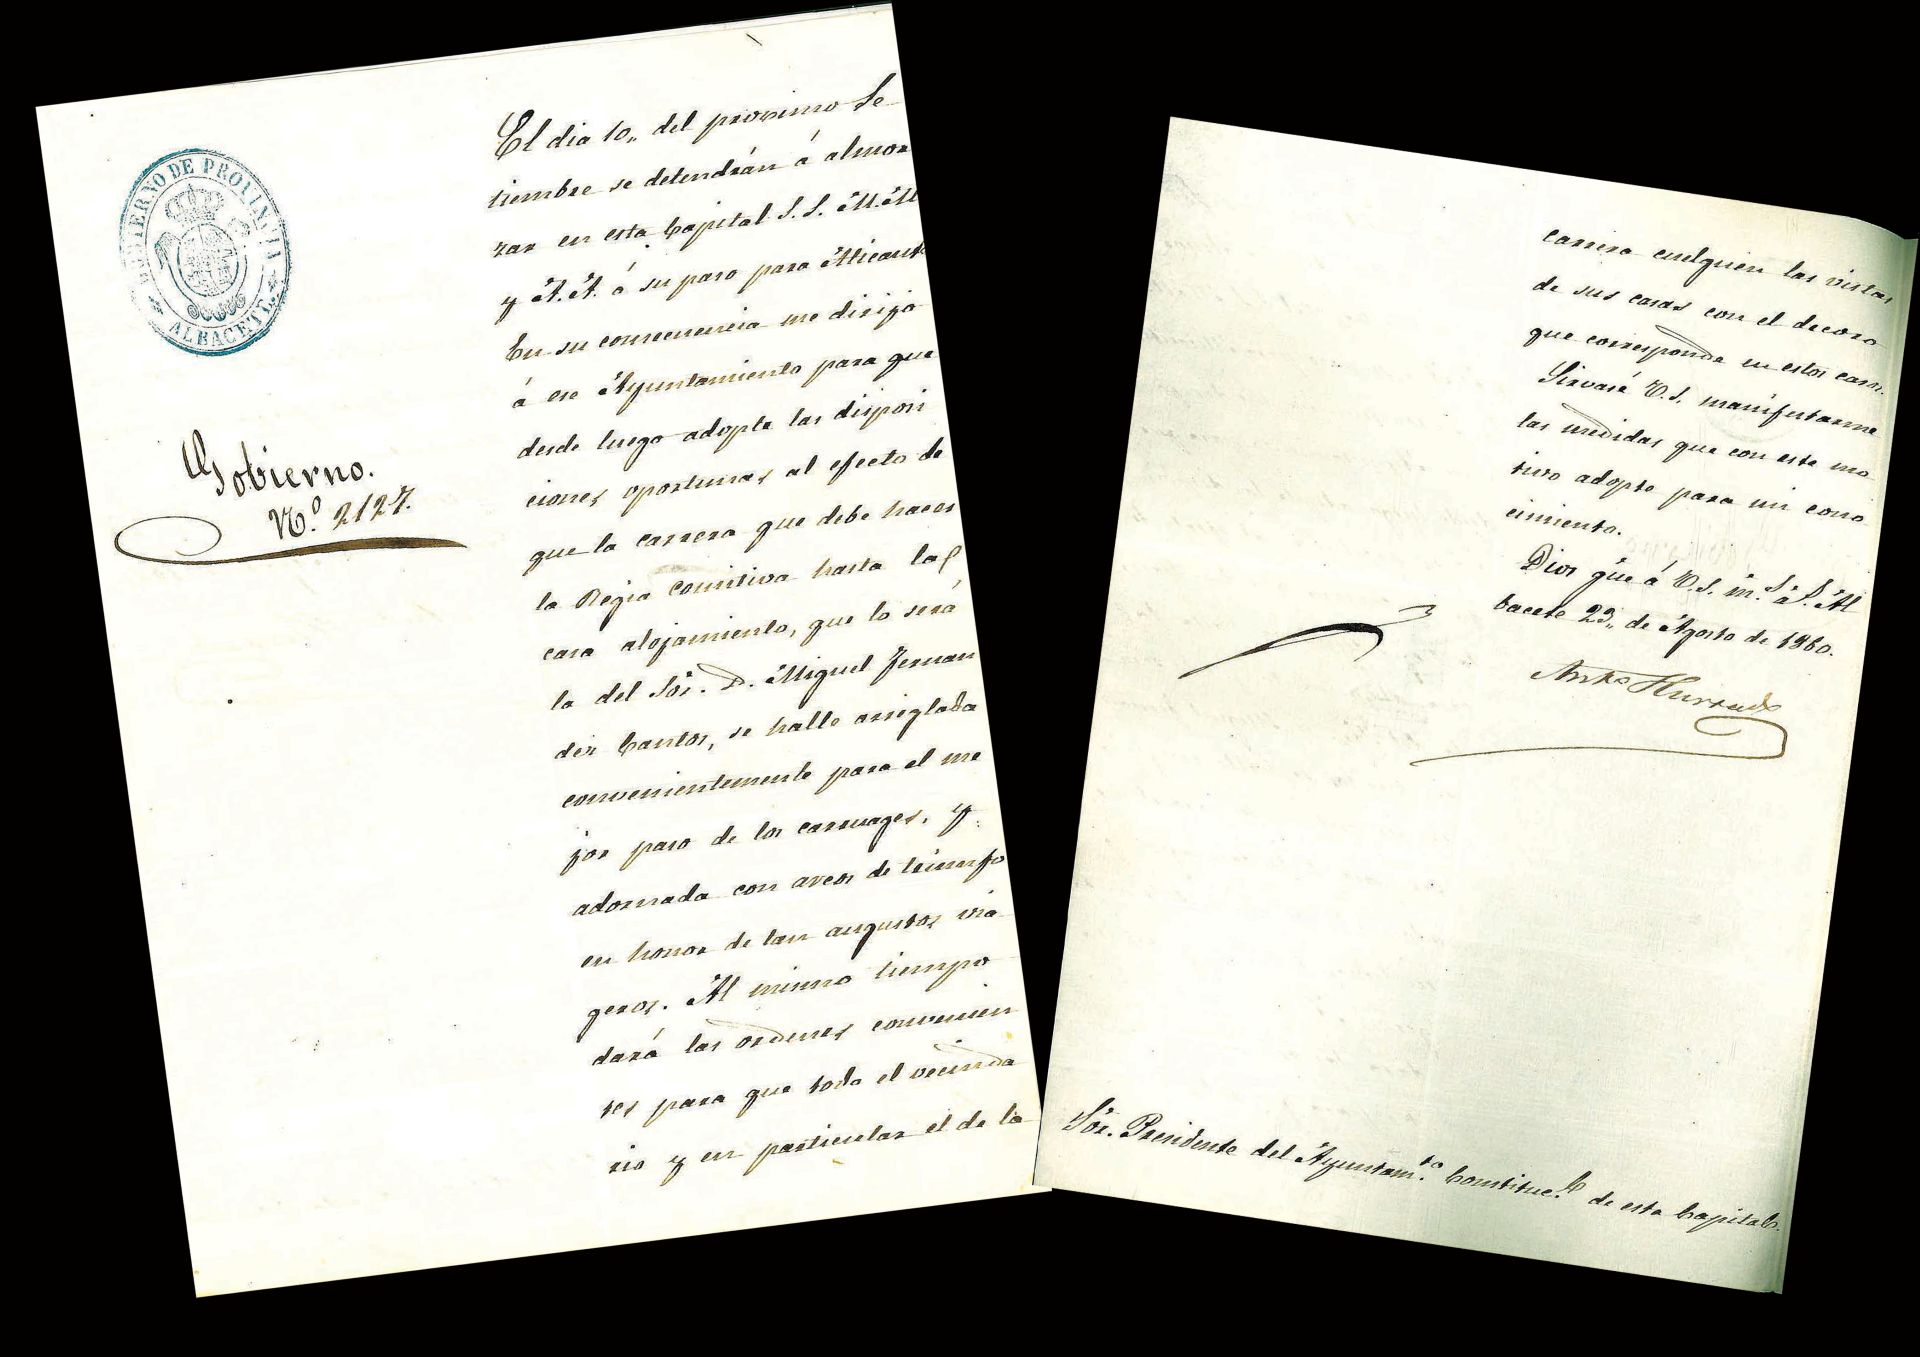 GOBIERNO DE PROVINCIA
* ALBACETE *
Gobierno.
N.º 2127.
El dia 10,, del proximo Se
tiembre se detendrán á almor
zar en esta Capital S.S. M.M
y A.A. á su paso para Alicante
En su consecuencia me dirijo
á ese Ayuntamiento para que
desde luego adopte las disposi
ciones oportunas al efecto de
que la carrera que debe hacer
la Regia comitiva hasta la
casa alojamiento, que lo será
la del Sór. D. Miguel Fernan
dez Cantos, se halle arreglada
convenientemente para el me
jor paso de los carruages, y
adornada con arcos de triunfo
en honor de tan augustos via
geros. Al mismo tiempo
dará las ordenes convenien
tes para que todo el vecinda
rio y en particular el de la
carrera cuelguen las vistas
de sus casas con el decoro
que corresponde en estos casos.
Sirvase V.S. manifestarme
las medidas que con este mo
tivo adopte para mi cono
cimiento.
Dios gűe á V.S. m.s a.s Al
bacete 23,, de Agosto de 1860.
Ant.o Hurtado
Sór. Presidente del Ayuntam.to Constituc.l de esta Capital.